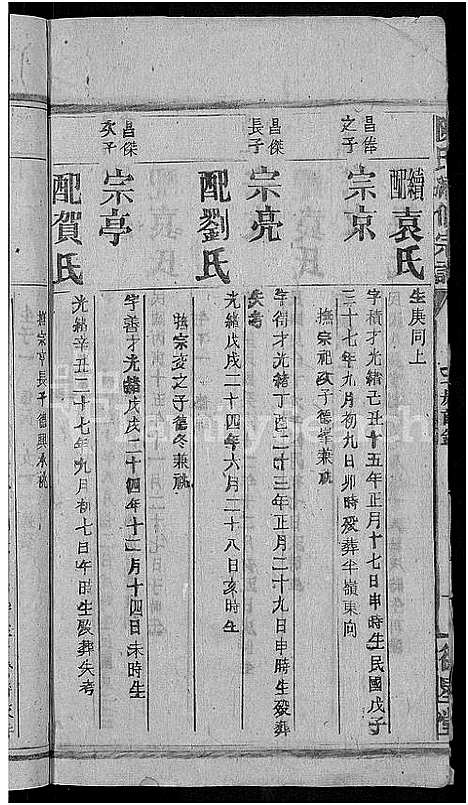 續配袁氏
生庚同上
昌俊之子
宗京
字積才光緒己丑十五年正月十七日申時生民國戊子
三十七年九月初九日卯時歿葬坐嶺東向
撫宗祖次子德峯兼祧
昌傑長子
宗亮
字得才光緒丁酉二十三年正月二十九日申時生歿葬
失考
配劉氏
光緒戊戌二十四年六月二十八日亥時生
撫宗炎之子德冬兼祧
昌傑次子
宗亭
字善才光緒戊戌二十四年十二月十四日未時生
配賀氏
光緒辛丑二十七年九月初七日午時生歿葬失考
撫宗京長子德興承祧
FamilySearch